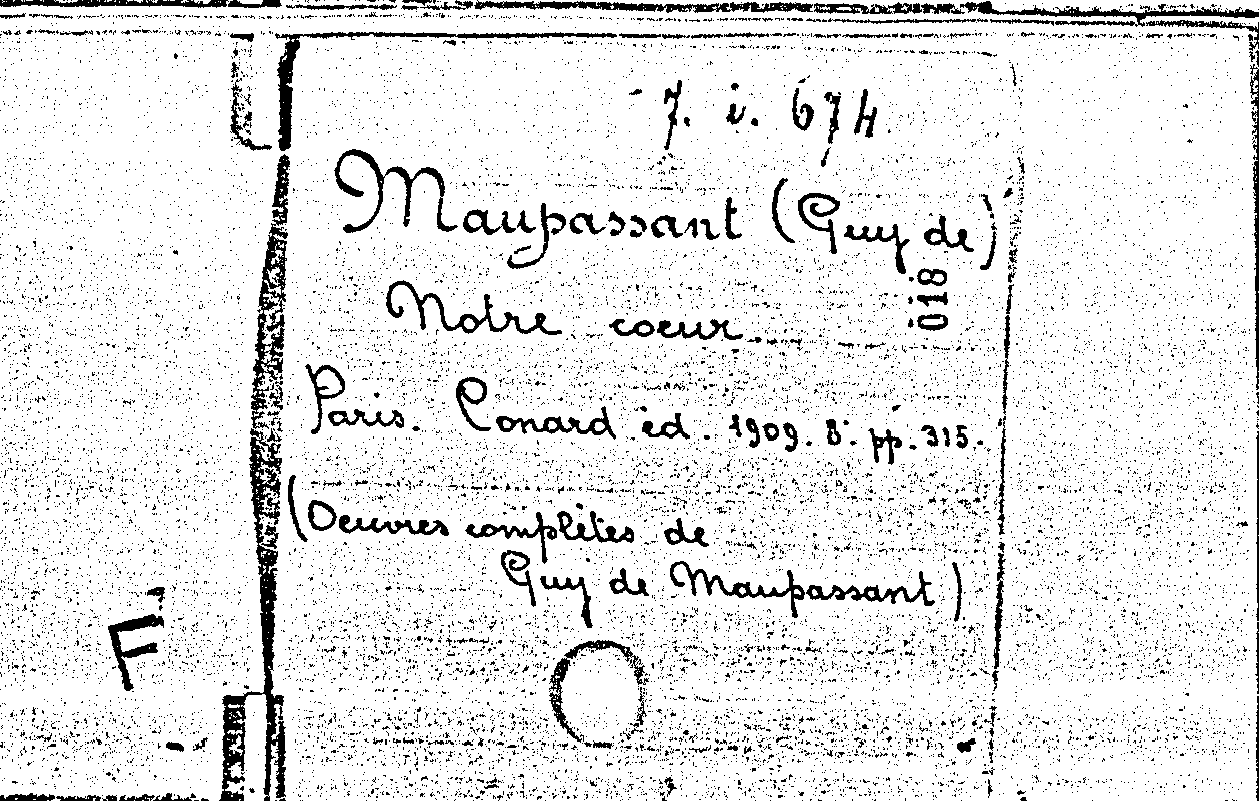 7. i. 674
Maupassant (Guy de)
018
Notre coeur
Paris. Conard ed. 1909. 8°. pp. 315.
(Oeuvres complètes de
Guy de Maupassant)
F